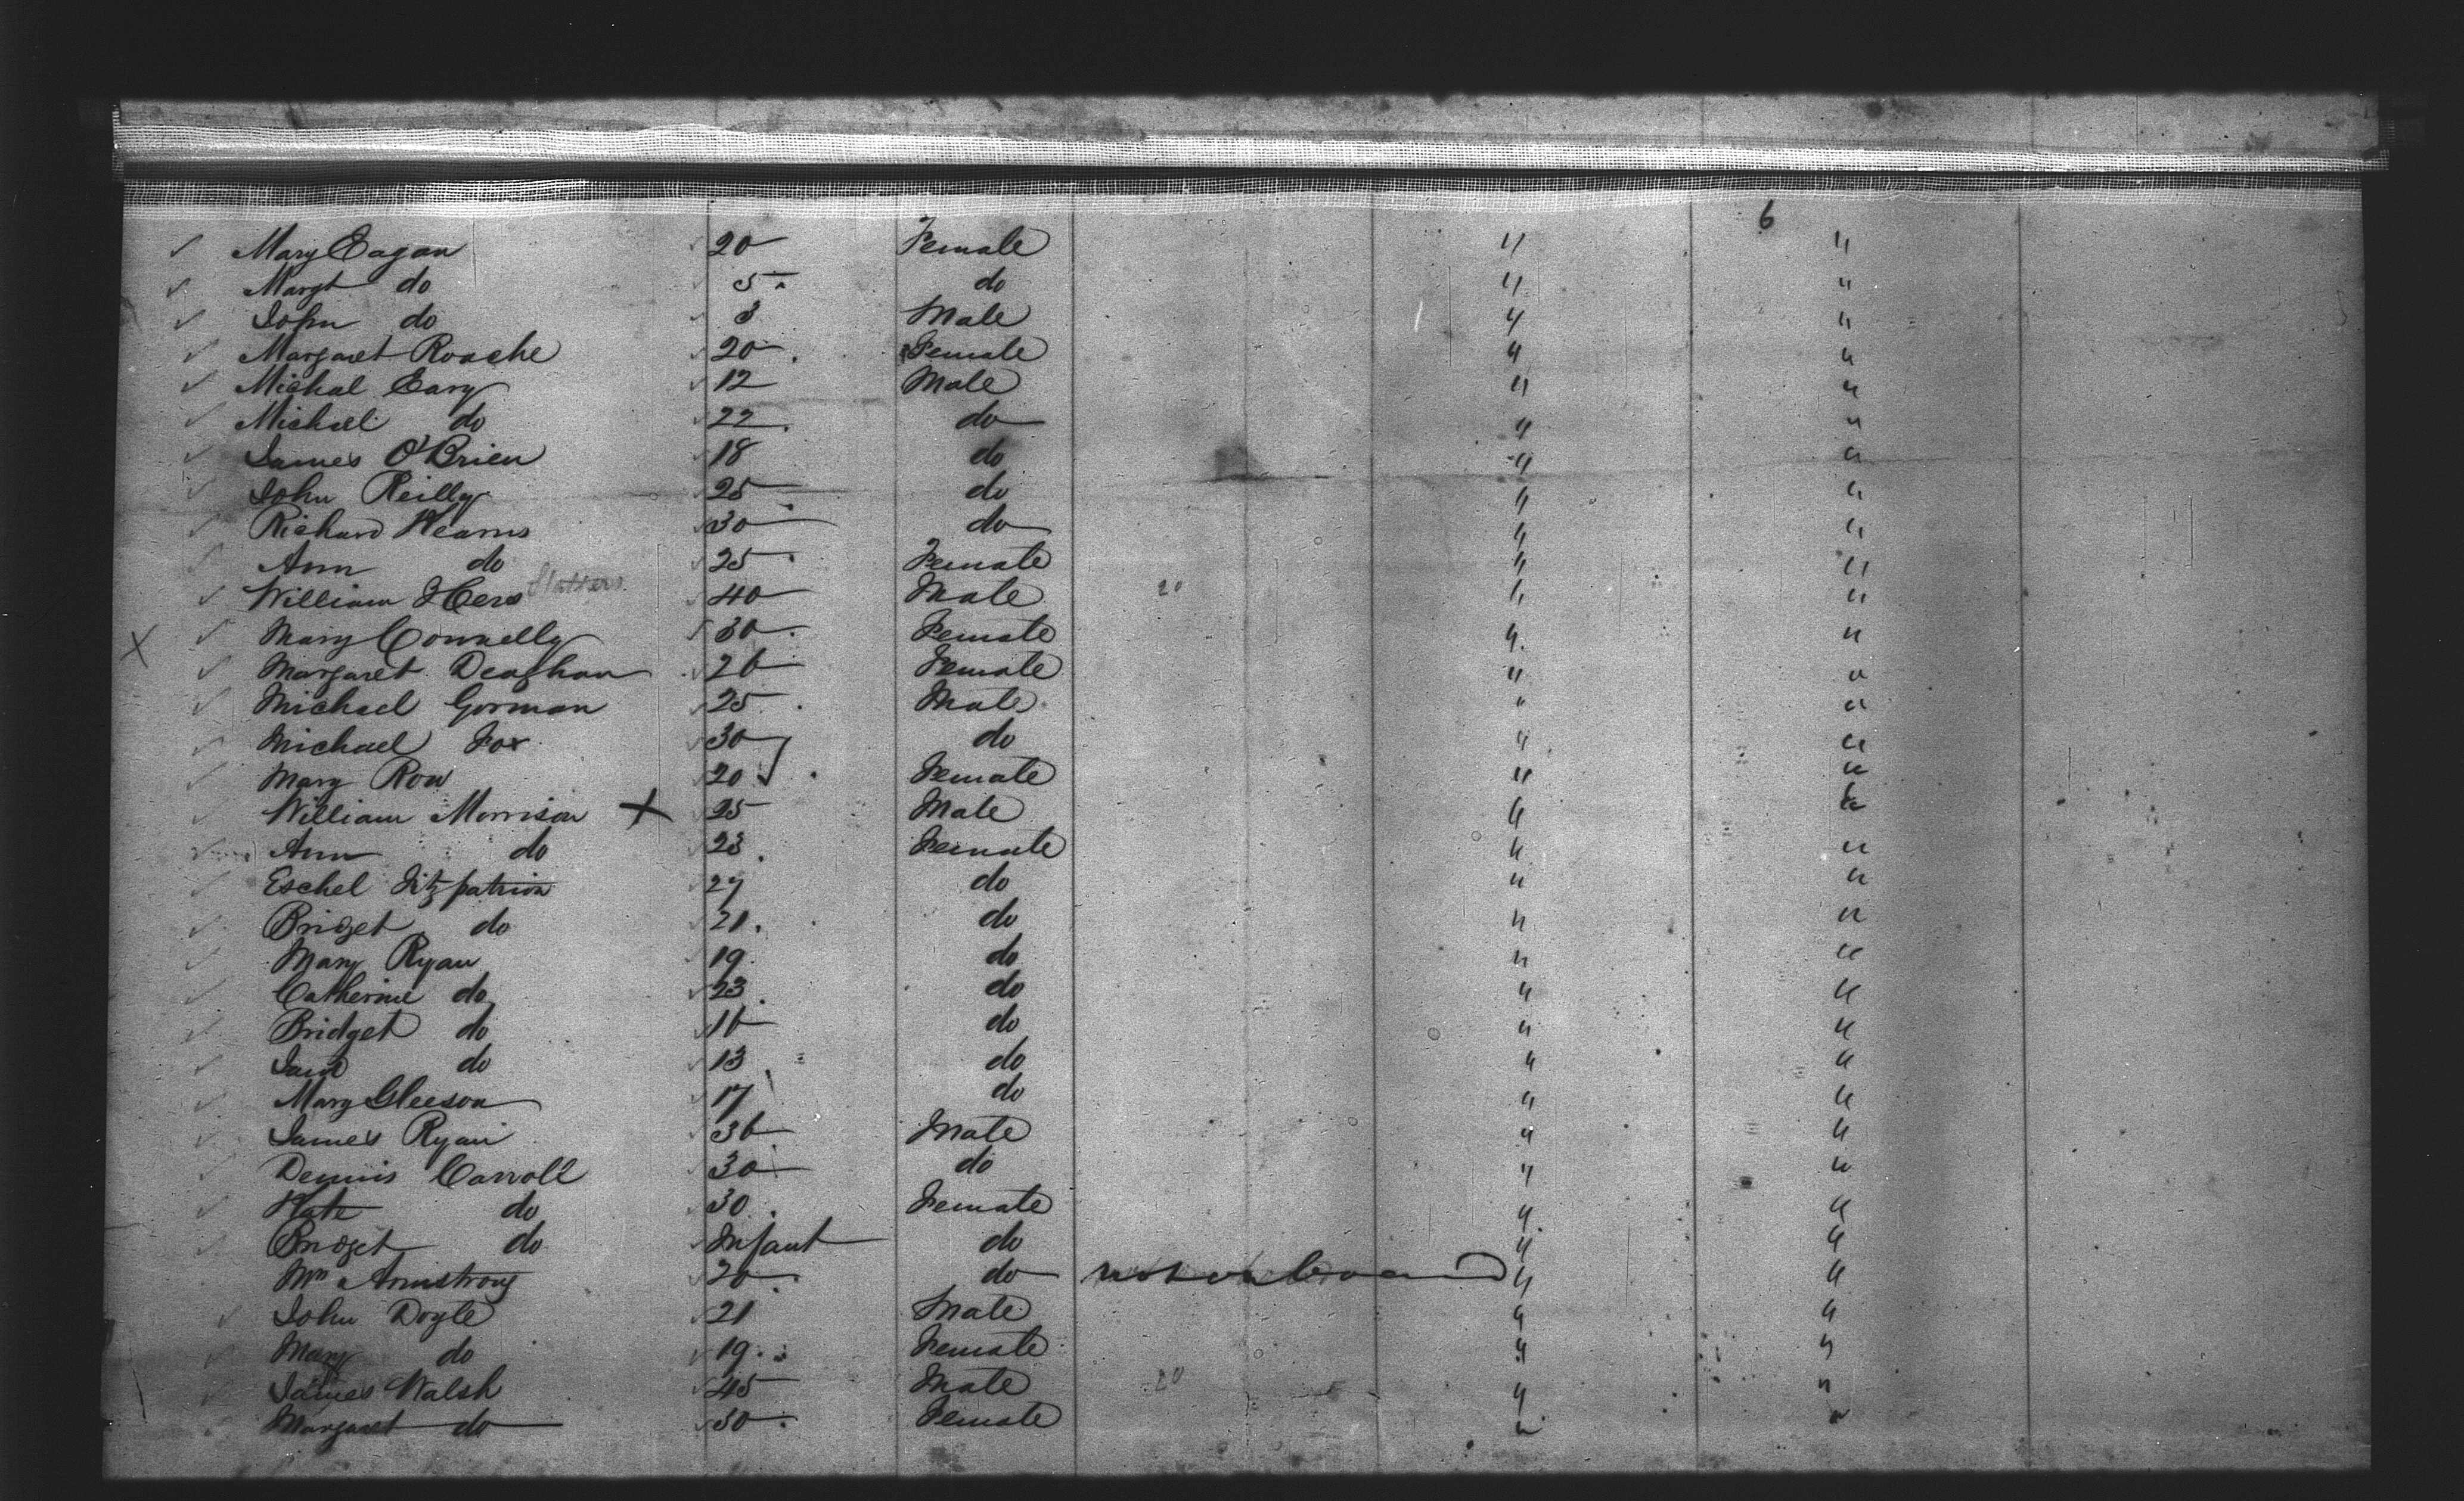 6
Mary Eagan 20 Female " "
Margt do 5 do " "
John do 3 Male " "
Margaret Roache 20 Female " "
Michal Eary 12 Male " "
Michael do 22 do " "
James O'Brien 18 do " "
John Reilly 25 do " "
Richard Kearns 30 do " "
Ann do 25 Female " "
William 40 Male 20 " "
X Mary Connelly 30 Female " "
Margaret Deaghan 26 Female " "
Michael Gorman 25 Male " "
Michael Fox 30 do " "
Mary Row 20 Female " "
William Morrison X 25 Male " "
Ann do 23 Female " "
Eschel Fitzpatrick 27 do " "
Bridget do 21 do " "
Mary Ryan 19 do " "
Catherine do 23 do " "
Bridget do 16 do " "
Jane do 13 do " "
Mary Gleeson 17 do " "
James Ryan 36 Male " "
Dennis Carroll 30 do " "
Kate do 30 Female " "
Bridget do Infant do " "
Mrs Armstrong 20 do not on board " "
John Doyle 21 Male " "
Mary do 19 Female " "
James Walsh 45 Male 20 " "
Margaret do 50 Female " "